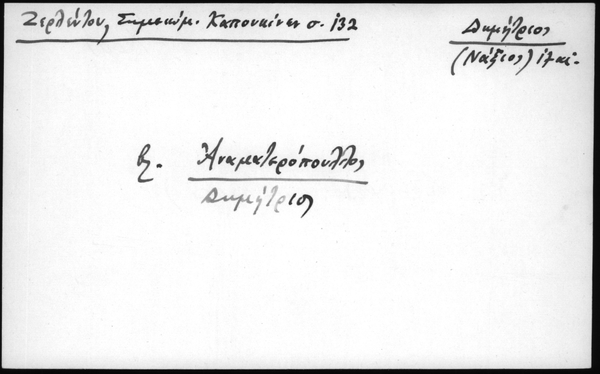 Ζερλέντου, Σημειώμ. Καπουκίνων σ. 132
Δημήτριος
(Νάξιος) 17 αἰ.
βλ. Ἀναματερόπουλλος
Δημήτριος